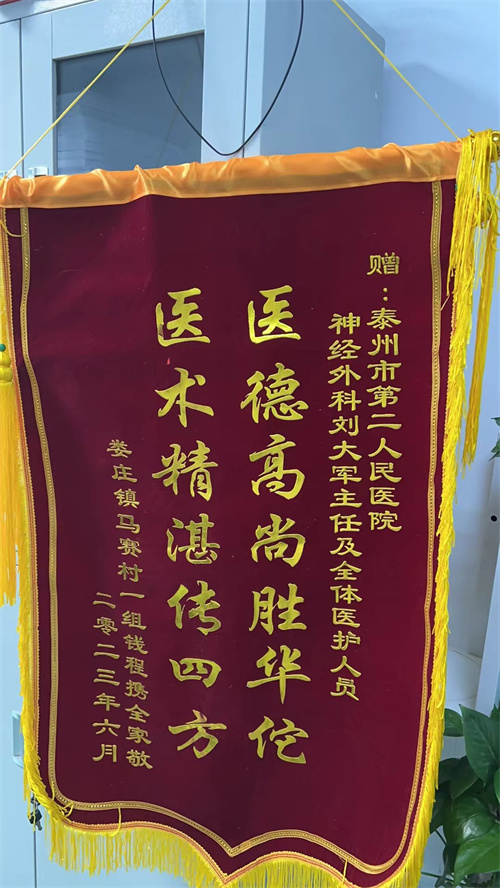 赠：泰州市第二人民医院
神经外科刘大军主任及全体医护人员
医德高尚胜华佗
医术精湛传四方
娄庄镇马赛村一组钱程携全家敬
二零二三年六月